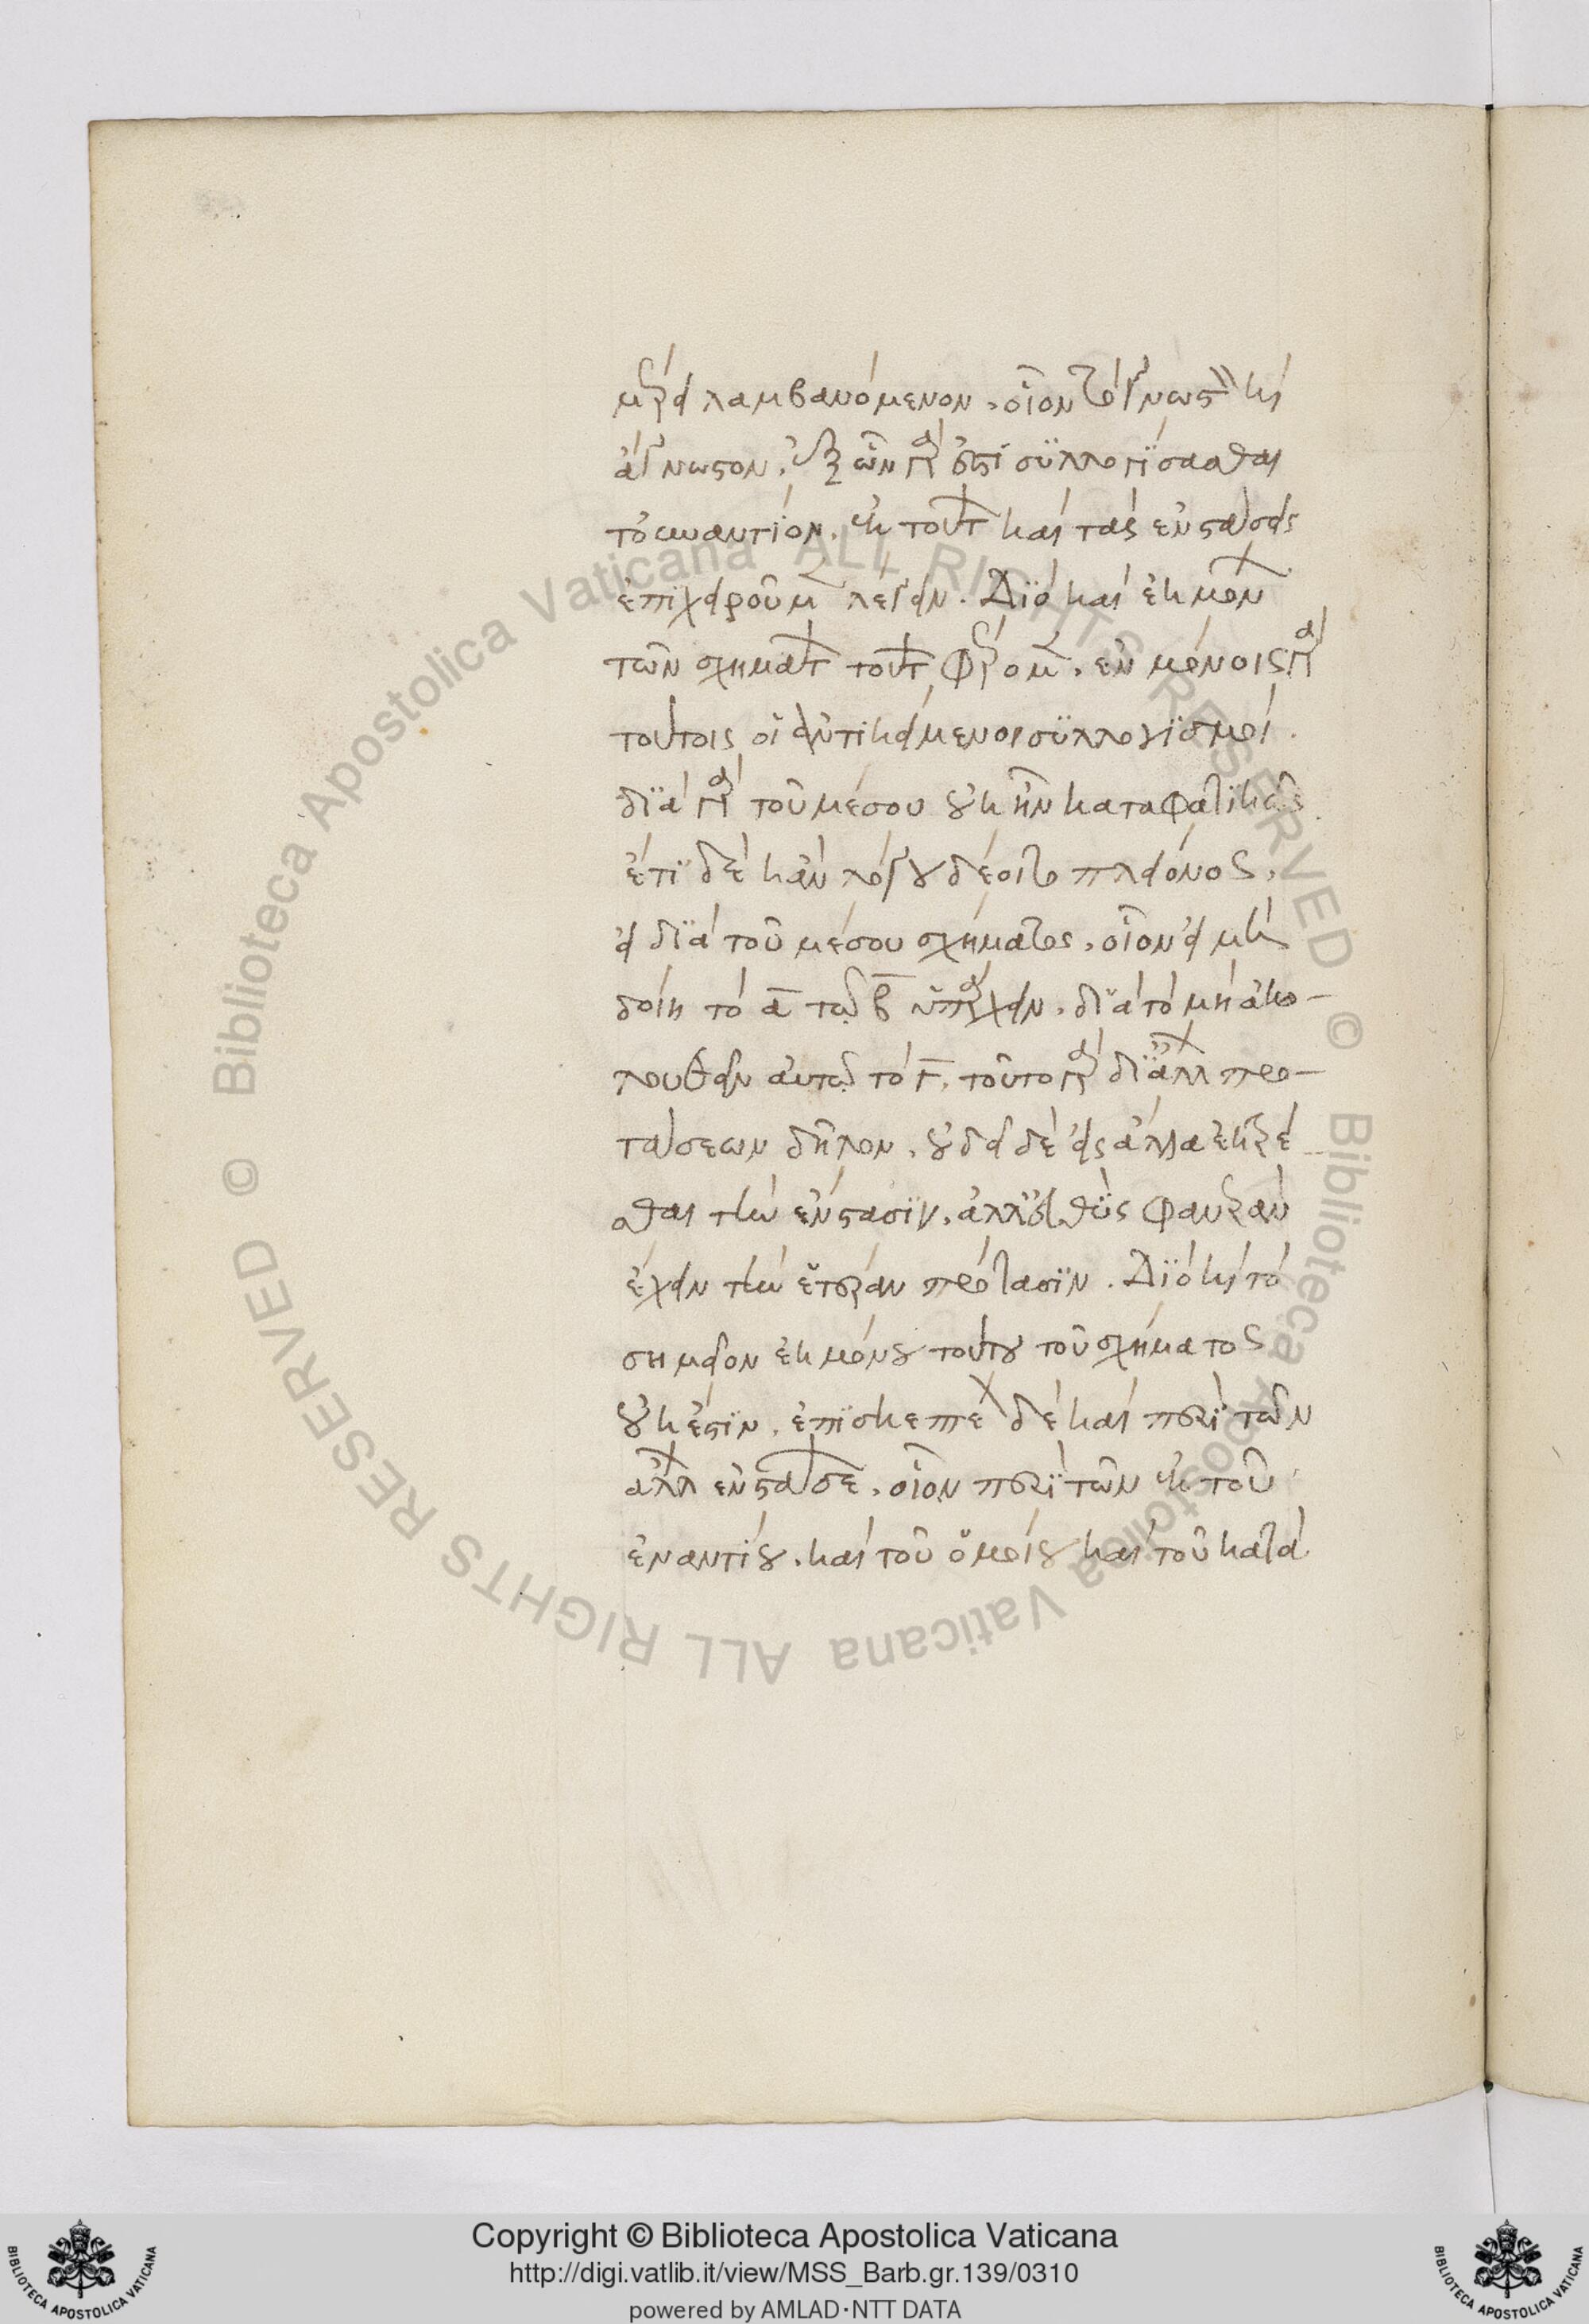 μέρει λαμβανόμενον, οἷον τὸ γνωστὸν καὶ
ἄγνωστον, ἐξ ὧν γάρ ἐστι συλλογίσασθαι
τὸ ἐναντίον, ἐκ τούτων καὶ τὰς ἐνστάσεις
ἐπιχειροῦμεν λέγειν. Διὸ καὶ ἐκ μόνων
τῶν σχημάτων τούτων φέρομεν, ἐν μόνοις γὰρ
τούτοις οἱ ἀντικείμενοι συλλογισμοί.
διὰ γὰρ τοῦ μέσου οὐκ ἦν καταφατικῶς.
ἔτι δὲ κἂν λόγου δέοιτο πλείονος,
εἰ διὰ τοῦ μέσου σχήματος, οἷον εἰ μὴ
δοίη τὸ α τῷ β ὑπάρχειν, διὰ τὸ μὴ ἀκο-
λουθεῖν αὐτῷ τὸ γ, τοῦτο γὰρ δι' ἄλλων προ-
τάσεων δῆλον, οὐ δεῖ δὲ εἰς ἄλλα ἐκτρέ
σθαι τὴν ἔνστασιν, ἀλλ' εὐθὺς φανερὰν
ἔχειν τὴν ἑτέραν πρότασιν. Διὸ καὶ τὸ
σημεῖον ἐκ μόνου τούτου τοῦ σχήματος
οὐκ ἔστιν. ἐπισκεπτέον δὲ καὶ περὶ τῶν
ἄλλων ἐνστάσεων, οἷον περὶ τῶν ἐκ τοῦ
ἐναντίου, καὶ τοῦ ὁμοίου καὶ τοῦ κατὰ
Copyright © Biblioteca Apostolica Vaticana
http://digi.vatlib.it/view/MSS_Barb.gr.139/0310
powered by AMLAD·NTT DATA
© Biblioteca Apostolica Vaticana ALL RIGHTS RESERVED
© Biblioteca Apostolica Vaticana ALL RIGHTS RESERVED
BIBLIOTECA APOSTOLICA VATICANA
BIBLIOTECA APOSTOLICA VATICANA